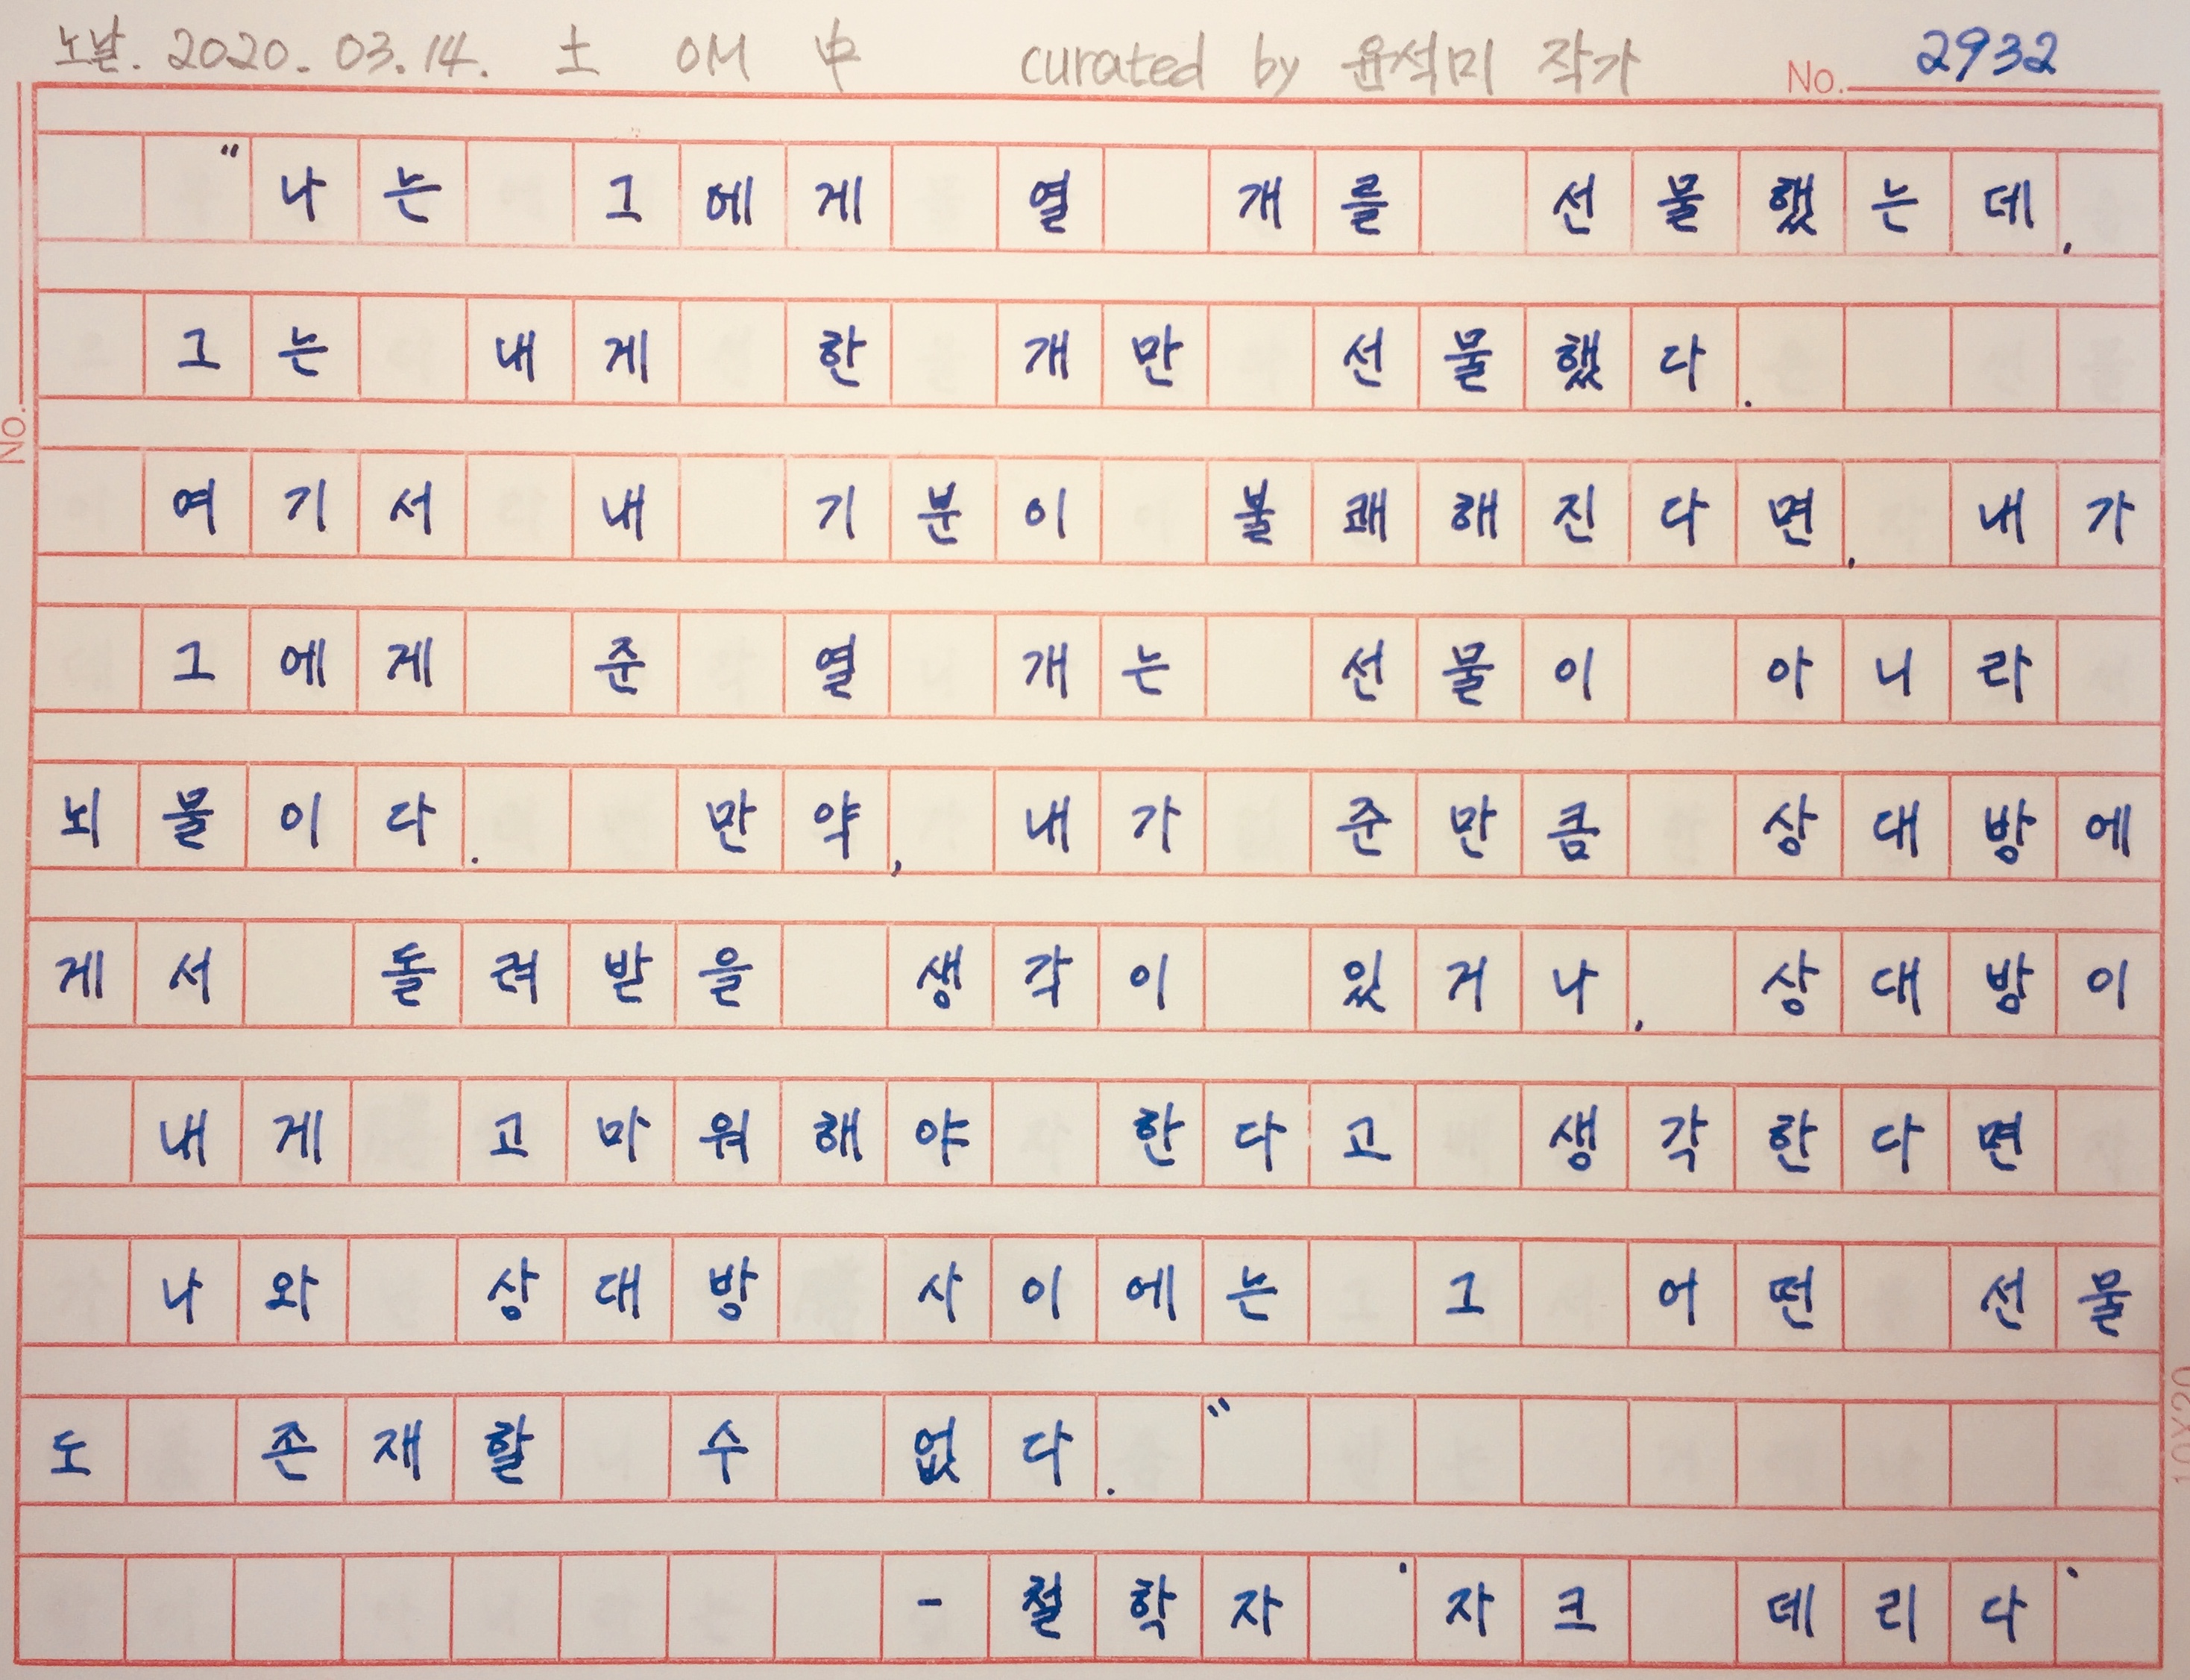 노날. 2020. 03. 14. 土 OM 中 curated by 윤석미 작가 No. 2932
"나는 그에게 열 개를 선물했는데,
그는 내게 한 개만 선물했다.
여기서 내 기분이 불쾌해진다면, 내가
그에게 준 열 개는 선물이 아니라
뇌물이다. 만약, 내가 준만큼 상대방에
게서 돌려받을 생각이 있거나, 상대방이
내게 고마워해야 한다고 생각한다면
나와 상대방 사이에는 그 어떤 선물
도 존재할 수 없다."
- 철학자 '자크 데리다'
No.
10X20